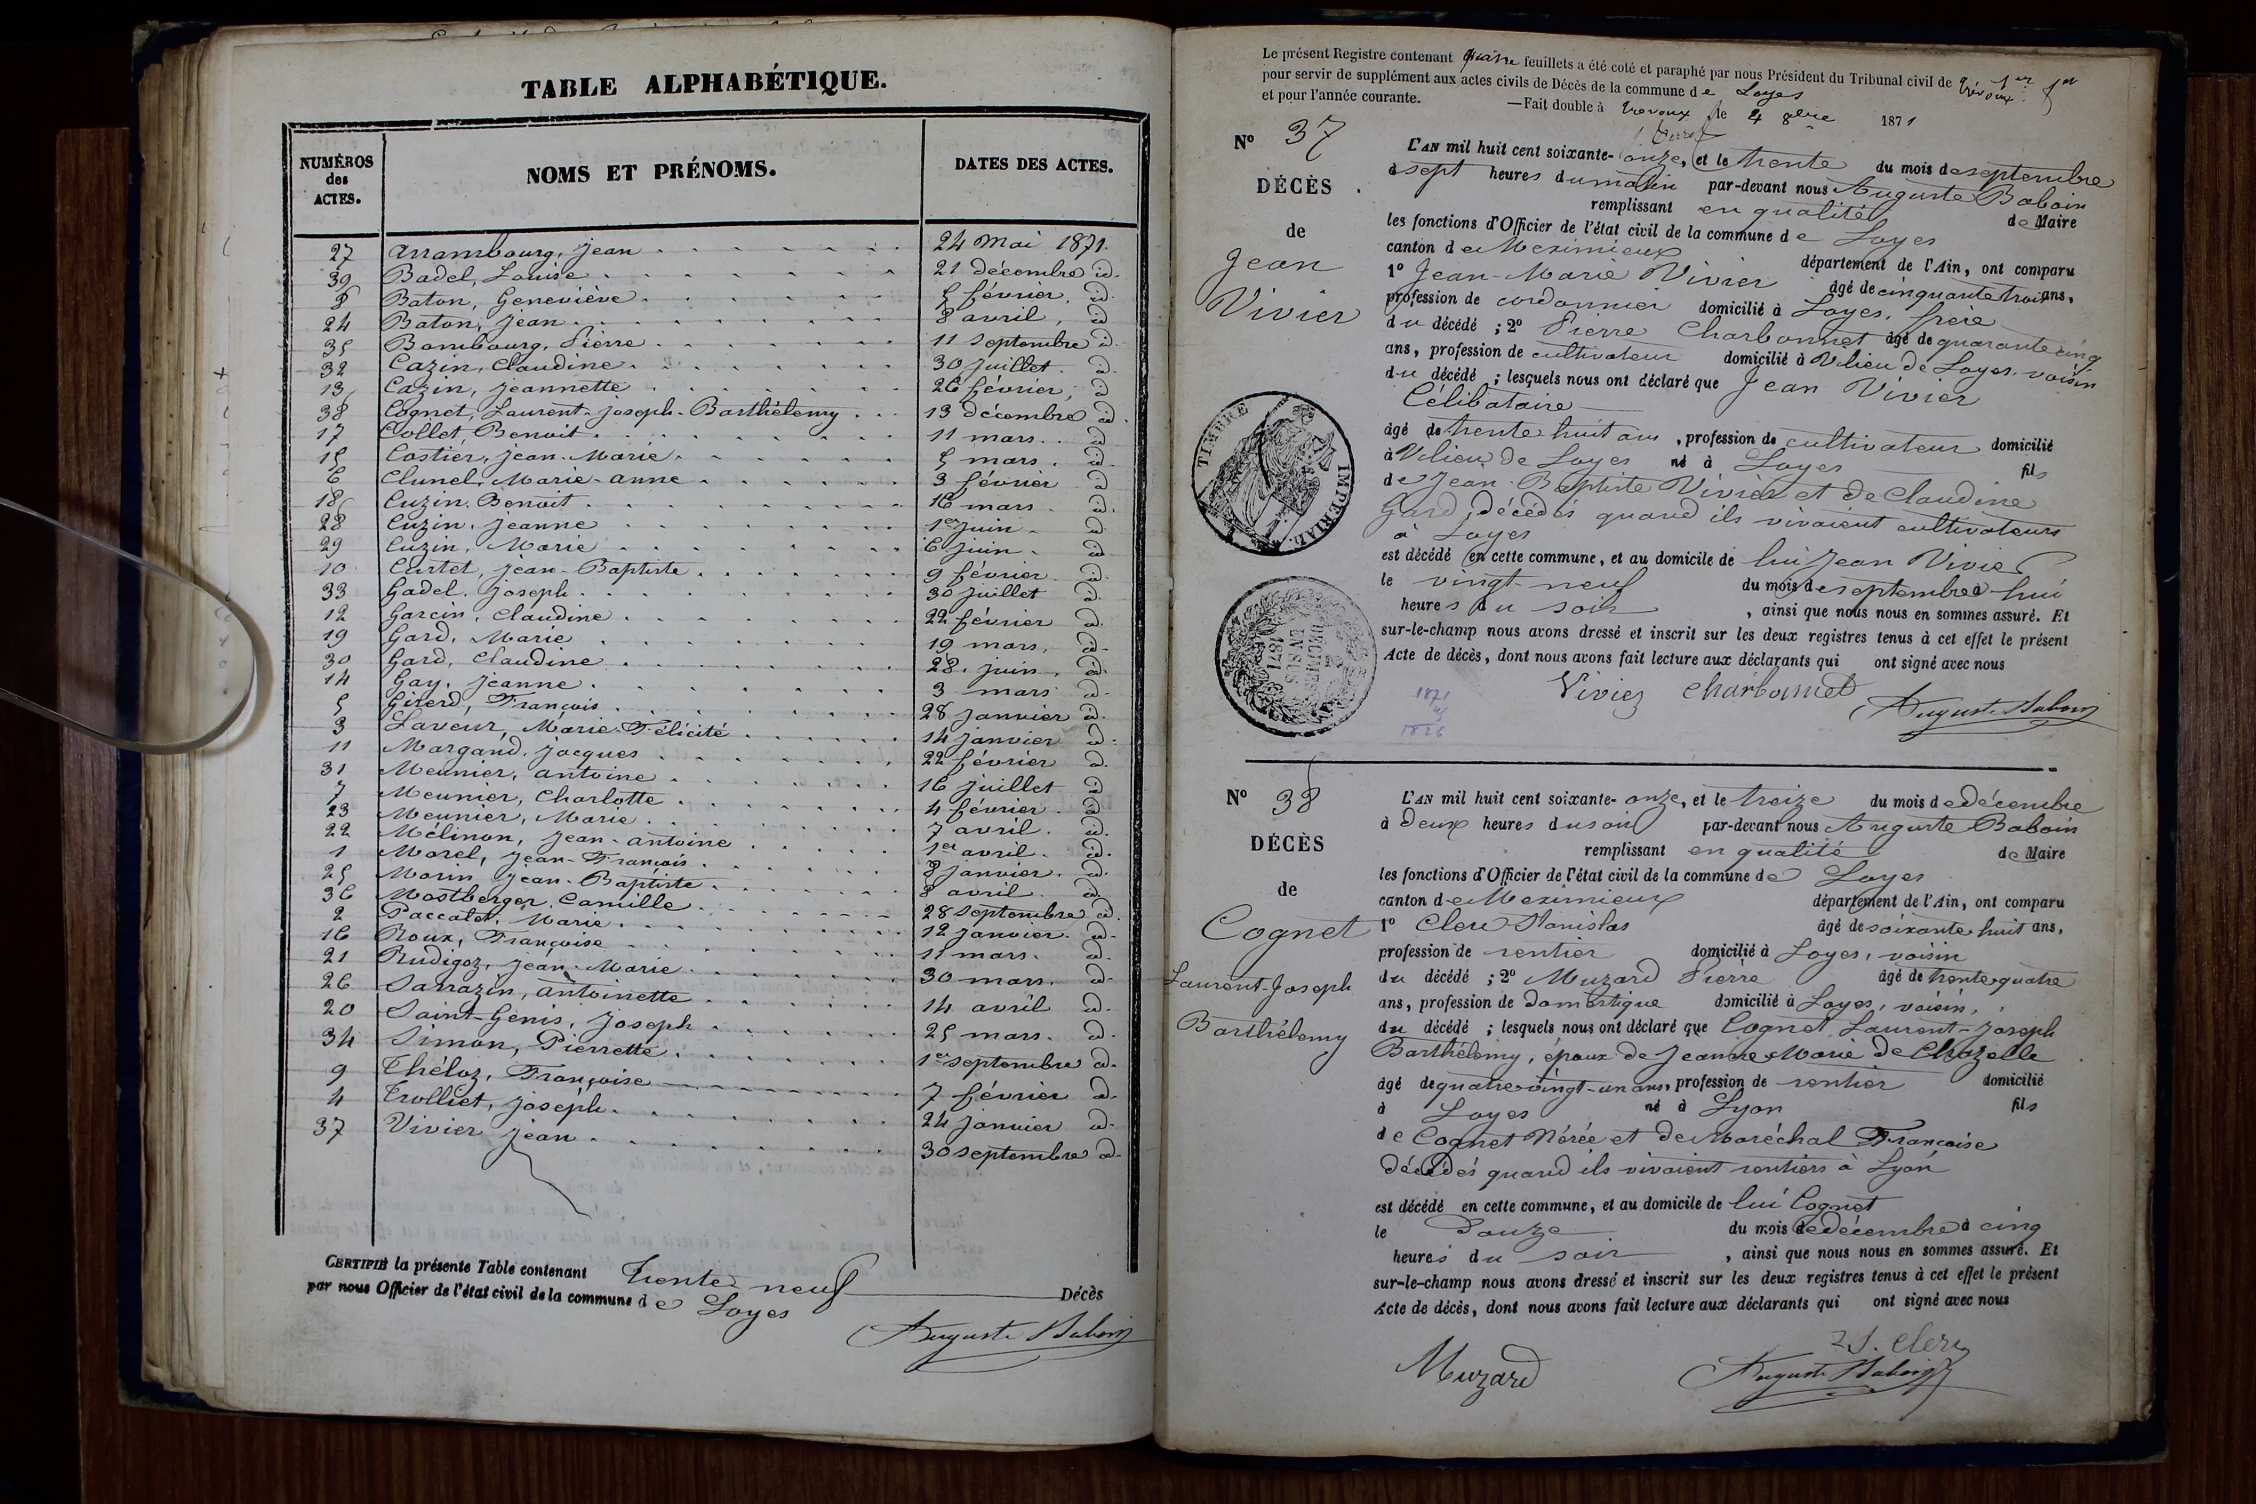 TABLE ALPHABÉTIQUE.
NUMÉROS des ACTES. NOMS ET PRÉNOMS. DATES DES ACTES.
27 Arrambourg, Jean 24 Mai 1871.
39 Badel, Louise 21 décembre id.
8 Baton, Geneviève 5 février, id.
24 Baton, Jean 8 avril, id
35 Bombourg, Pierre 11 septembre id.
32 Cazin, Claudine 30 juillet id.
13 Cazin, Jeannette 26 février, id
38 Cognet, Laurent-Joseph-Barthélemy 13 décembre id.
17 Collet Benoit 11 mars id
15 Costier, Jean-Marie 5 mars. id.
6 Clunel, Marie-Anne 3 février id
18 Cuzin, Benoit 16 mars id.
28 Cuzin, Jeanne 1er juin id
29 Cuzin, Marie 6 juin id
10 Curtet, Jean-Baptiste 9 février id.
33 Gadel, Joseph 30 juillet id
12 Garcin, Claudine 22 février id
19 Gard, Marie 19 mars, id.
30 Gard, Claudine 28 juin id.
14 Gay, Jeanne 3 mars id.
5 Girerd, François 28 janvier id.
3 Laveur, Marie-Félicité 14 janvier id.
11 Margand, Jacques 22 février id.
31 Meunier, Antoine 16 juillet id
7 Meunier, Charlotte 4 février id
23 Meunier, Marie 7 avril id.
22 Mélinon, Jean-Antoine 1er avril id.
1 Morel, Jean-François 8 janvier id.
25 Morin, Jean-Baptiste 8 avril id
36 Mostberger, Camille 28 septembre id.
2 Paccalet, Marie 12 janvier id.
16 Roux, Françoise 11 mars id.
21 Rudigoz, Jean-Marie 30 mars id.
26 Sarrazin, Antoinette 14 avril id.
20 Saint-Genis, Joseph 25 mars id.
34 Simon, Pierrette 1er septembre id.
9 Théloz, Françoise 7 février id.
4 Trolliet, Joseph 24 janvier id.
37 Vivier Jean 30 septembre id.
CERTIFIÉ la présente Table contenant Trente neuf Décès
par nous Officier de l'état civil de la commune de Loyes
Auguste Baboin
Le présent Registre contenant quatre feuillets a été coté et paraphé par nous Président du Tribunal civil de Trévoux 1er
pour servir de supplément aux actes civils de Décès de la commune de Loyes
et pour l'année courante. —Fait double à Trévoux le 4 8bre 1871
N° 37
DÉCÈS
de
Jean
Vivier
L'AN mil huit cent soixante-onze, et le trente du mois de septembre
à sept heures du matin par-devant nous Auguste Baboin
remplissant en qualité de Maire
les fonctions d'Officier de l'état civil de la commune de Loyes
canton de Meximieux département de l'Ain, ont comparu
1° Jean-Marie Vivier âgé de cinquante trois ans,
profession de cordonnier domicilié à Loyes, frère
du décédé ; 2° Pierre Charbonnet âgé de quarante cinq
ans, profession de cultivateur domicilié à Vlieu de Loyes, voisin
du décédé ; lesquels nous ont déclaré que Jean Vivier
Célibataire
âgé de trente huit ans, profession de cultivateur domicilié
à Vlieu de Loyes né à Loyes fils
de Jean-Baptiste Vivier et de Claudine
Gard, décédés quand ils vivaient cultivateurs
à Loyes
est décédé en cette commune, et au domicile de lui Jean Vivier
le vingt-neuf du mois de septembre à huit
heures du soir, ainsi que nous nous en sommes assuré. Et
sur-le-champ nous avons dressé et inscrit sur les deux registres tenus à cet effet le présent
Acte de décès, dont nous avons fait lecture aux déclarants qui ont signé avec nous
Vivier Charbonnet
Auguste Baboin
TIMBRE IMPÉRIAL
2 DÉCIMES EN SUS 1871
1871
45
1826
N° 38
DÉCÈS
de
Cognet
Laurent-Joseph
Barthélemy
L'AN mil huit cent soixante-onze, et le treize du mois de décembre
à deux heures du soir par-devant nous Auguste Baboin
remplissant en qualité de Maire
les fonctions d'Officier de l'état civil de la commune de Loyes
canton de Meximieux département de l'Ain, ont comparu
1° Clerc Stanislas âgé de soixante huit ans,
profession de rentier domicilié à Loyes, voisin
du décédé ; 2° Muzard Pierre âgé de trente quatre
ans, profession de domestique domicilié à Loyes, voisin,
du décédé ; lesquels nous ont déclaré que Cognet Laurent-Joseph
Barthélemy, époux de Jeanne Marie de Chazelle
âgé de quatre-vingt-un ans, profession de rentier domicilié
à Loyes né à Lyon fils
de Cognet Nérée et de Maréchal Françoise
décédés quand ils vivaient rentiers à Lyon
est décédé en cette commune, et au domicile de lui Cognet
le Douze du mois de décembre à cinq
heures du soir, ainsi que nous nous en sommes assuré. Et
sur-le-champ nous avons dressé et inscrit sur les deux registres tenus à cet effet le présent
Acte de décès, dont nous avons fait lecture aux déclarants qui ont signé avec nous
Muzard Z S. Clerc
Auguste Baboin